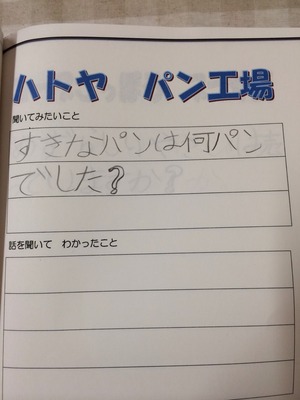 ハトヤ　パン工場
聞いてみたいこと
すきなパンは何パン
でした?
話を聞いて　わかったこと